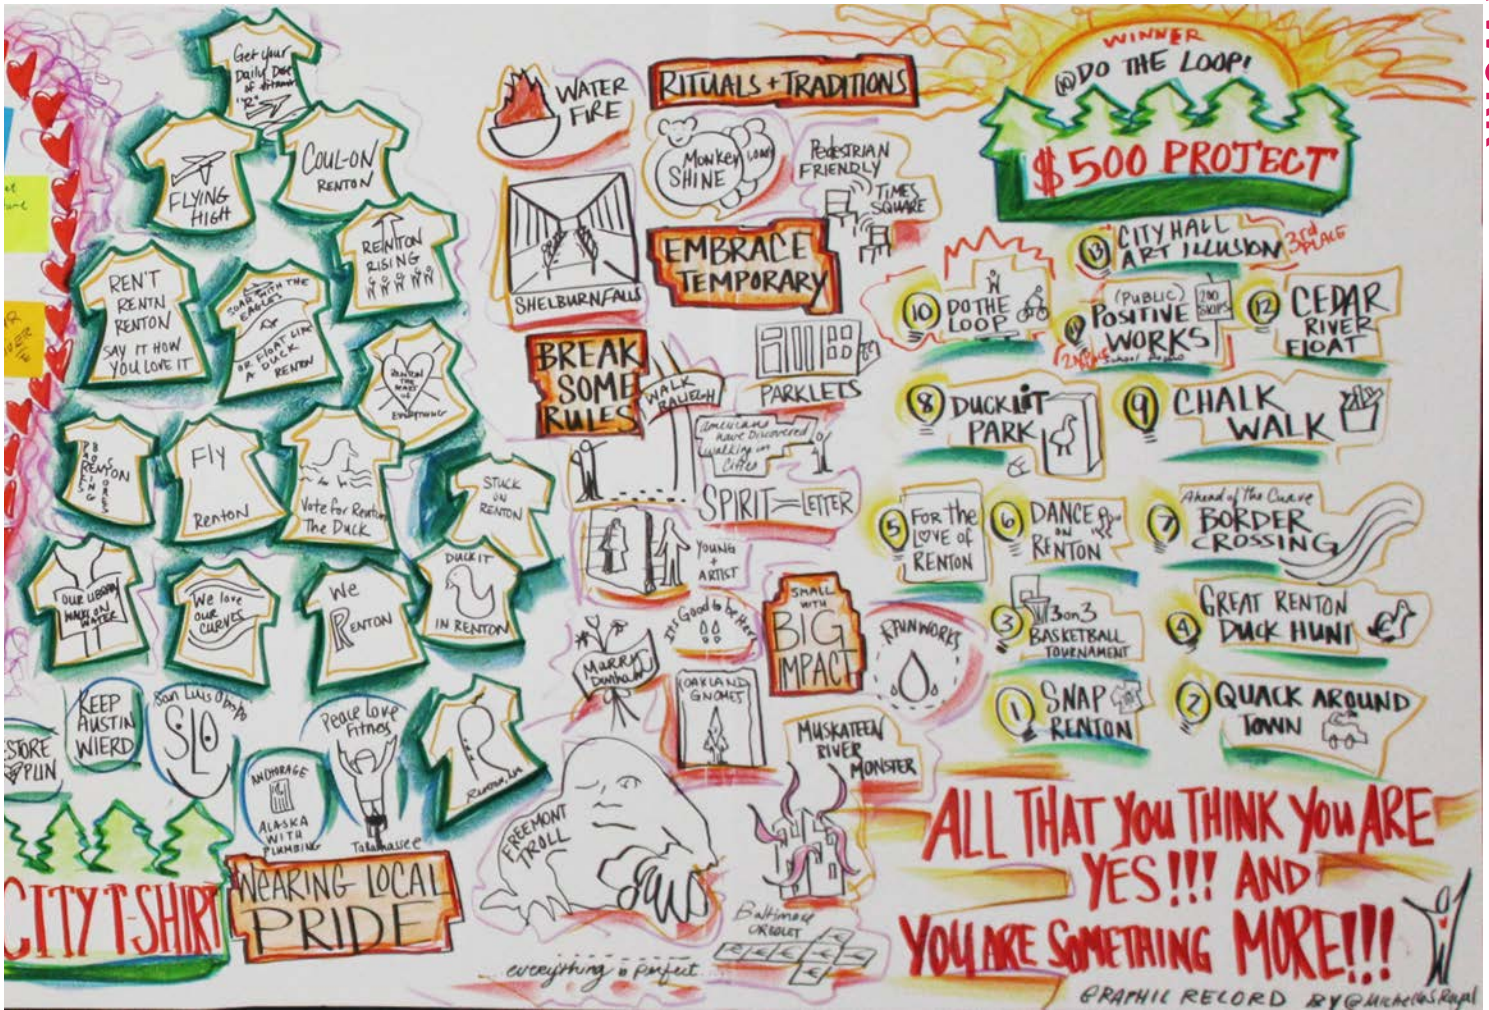 Get your
Daily Dose
of
"R"
FLYING
HIGH
COUL-ON
RENTON
RENTON
RISING
REN'T
RENTN
RENTON
SAY IT HOW
YOU LOVE IT
SOAR WITH THE
EAGLES
OR FLOAT LIKE
A DUCK
RENTON
RENTON
THE
HEART
OF
EVERYTHING
RENTON
FLY
RENTON
Vote for Renton
The Duck
STUCK
ON
RENTON
OUR LIBRARY
WALKS ON
WATER
We love
OUR
CURVES
We
RENTON
DUCK IT
IN RENTON
R
RENTON, WA
KEEP
AUSTIN
WIERD
San Luis Obispo
SLO
ANCHORAGE
ALASKA
WITH
PLUMBING
Peace Love
Fitness
Tallahassee
STORE
PUN
CITY T-SHIRT
WEARING LOCAL
PRIDE
WATER
FIRE
RITUALS + TRADITIONS
Monkey
SHINE
PEDESTRIAN
FRIENDLY
TIMES
SQUARE
SHELBURN FALLS
EMBRACE
TEMPORARY
BREAK
SOME
RULES
PARKLETS
WALK
RALIEGH
Americans
have Discovered
walking in
Cities
SPIRIT = LETTER
YOUNG
+
ARTIST
It's Good to be Here
SMALL
WITH
BIG
IMPACT
RAINWORKS
MARRY
Durham
OAKLAND
GNOMES
MUSKATEEN
RIVER
MONSTER
FREEMONT
TROLL
Baltimore
everything is perfect
WINNER
10 DO THE LOOP!
$500 PROJECT
13 CITY HALL
ART ILLUSION
3rd
PLACE
10 DO THE
LOOP
11 (PUBLIC)
POSITIVE
WORKS
12 CEDAR
RIVER
FLOAT
8 DUCK LIT
PARK
9 CHALK
WALK
5 FOR the
LOVE of
RENTON
6 DANCE
ON
RENTON
7 Ahead of the Curve
BORDER
CROSSING
3 3on3
BASKETBALL
TOURNAMENT
4 GREAT RENTON
DUCK HUNT
1 SNAP
RENTON
2 QUACK AROUND
TOWN
ALL THAT YOU THINK YOU ARE
YES!!! AND
YOU ARE SOMETHING MORE!!!
GRAPHIC RECORD BY @MichelleSRoyal